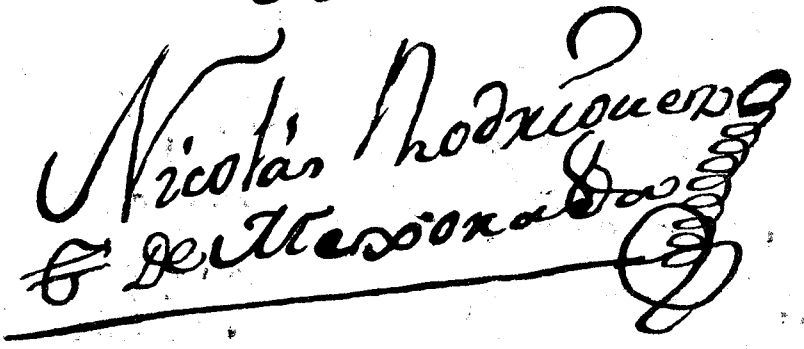 Nicolás Rodriguez
De Mexorada